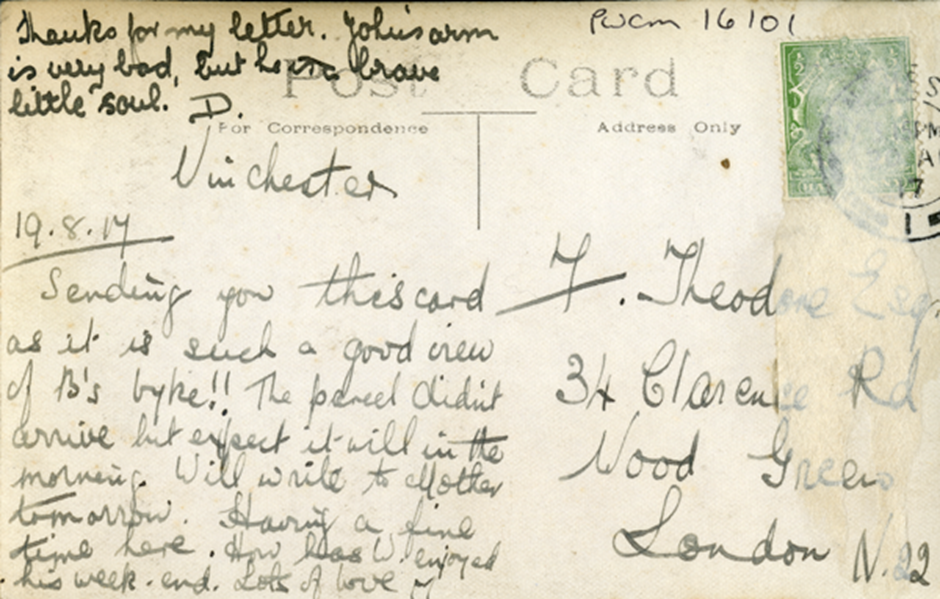 Thanks for my letter. John's arm
is very bad, but he is a brave
little soul. D.
PWCM 16/01
Post Card
For Correspondence
Address Only
Winchester
19.8.17
Sending you this card
as it is such a good view
of B's byke!! The parcel didn't
arrive but expect it will in the
morning. Will write to Mother
tomorrow. Having a fine
time here. How has W. enjoyed
his week-end. Lots of love
F. Theodore Esq.
34 Clarence Rd
Wood Green
London N.22